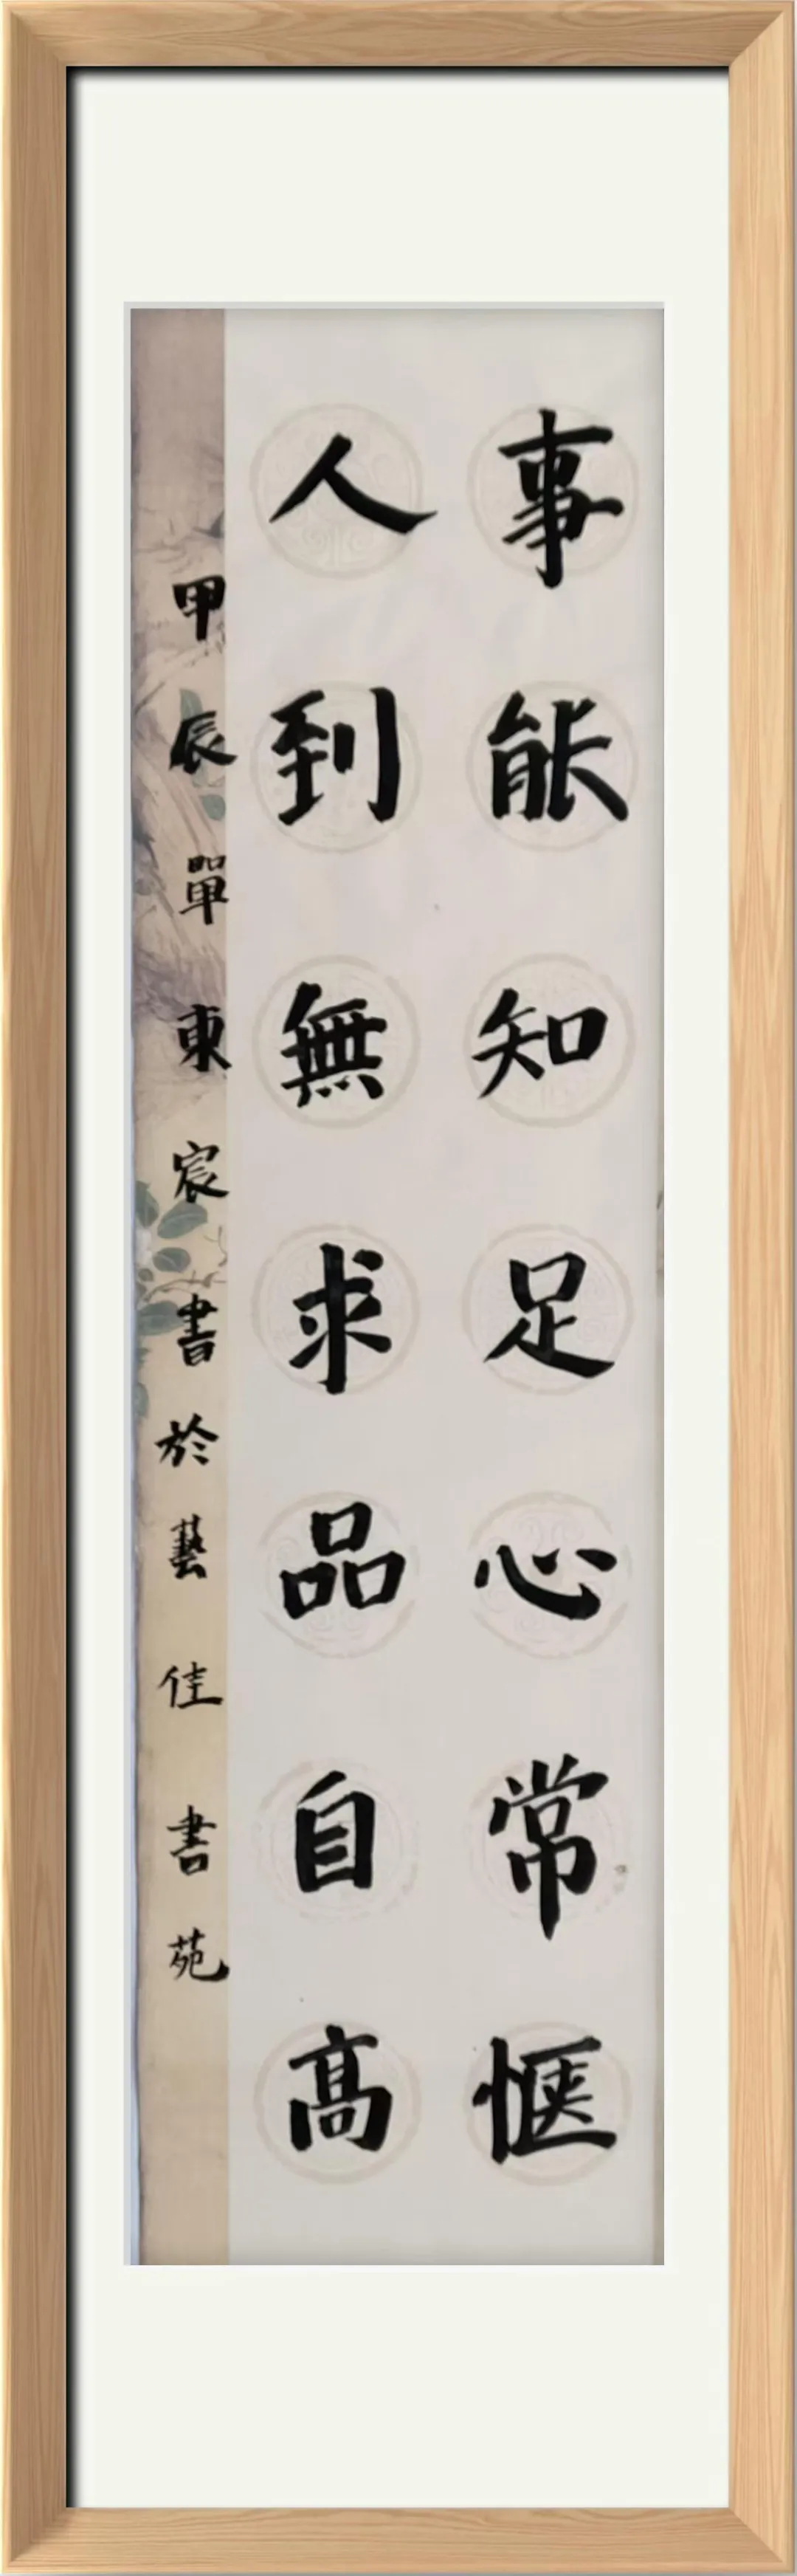 事能知足心常愜
人到無求品自高
甲辰單東宸書於藝佳書苑